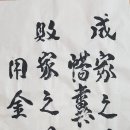 成家之
惜糞
敗家之
用金